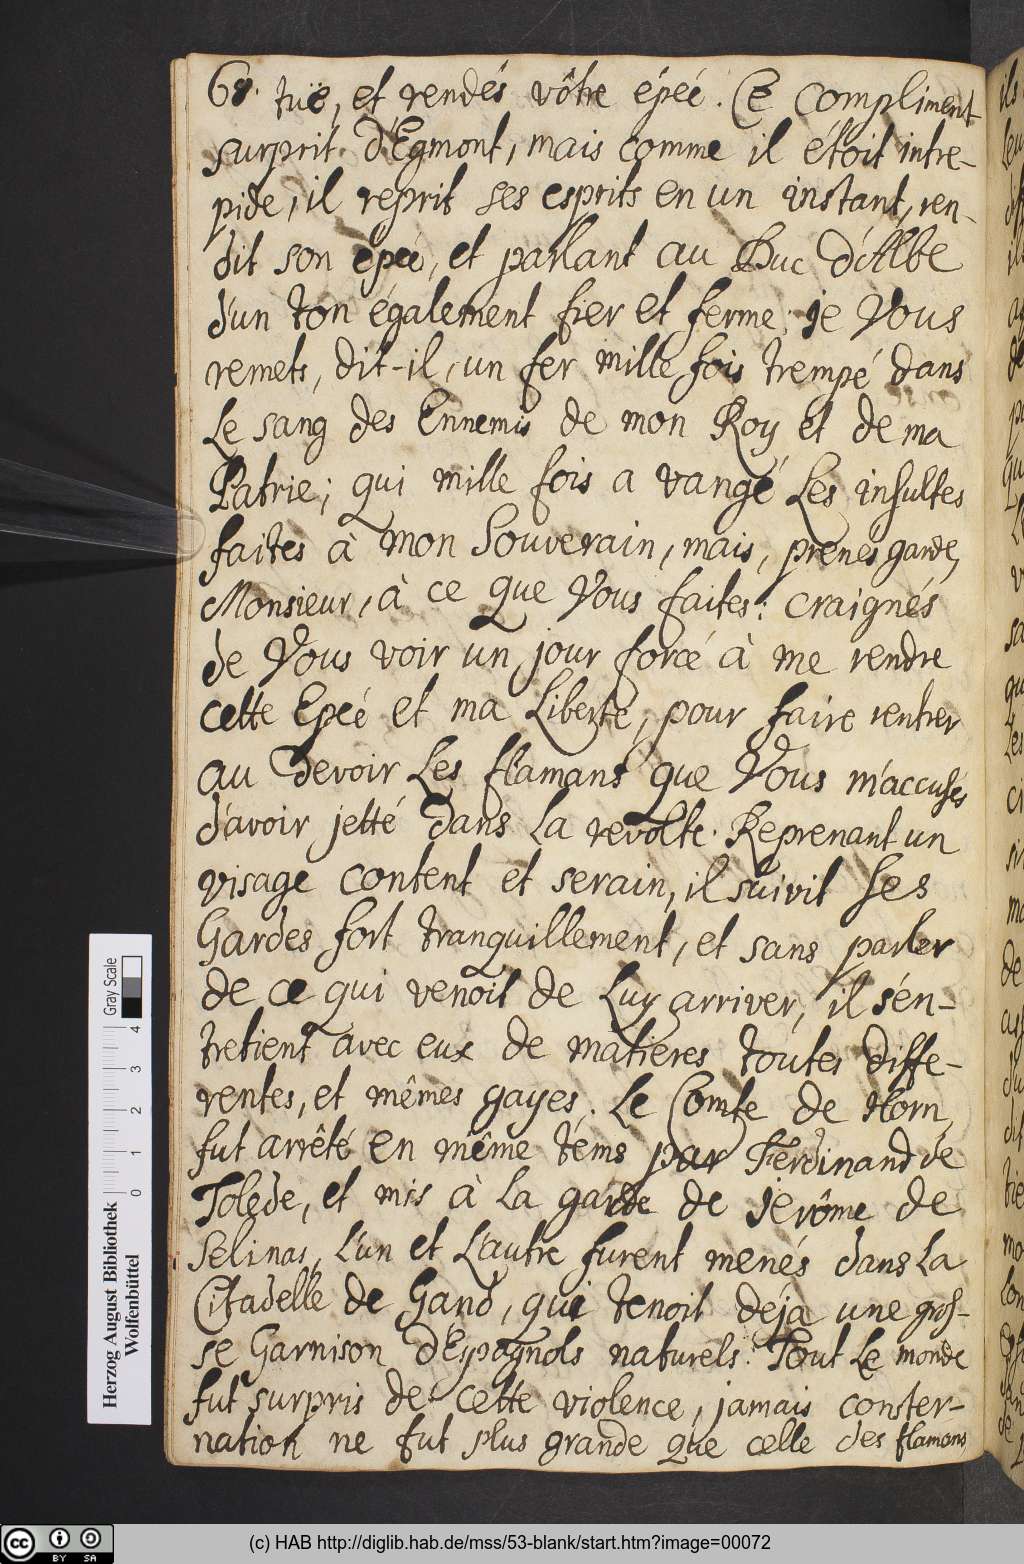 68. tuë, et rendés vôtre épeé. Ce compliment
surprit d'Egmont, mais comme il étoit intre-
pide, il reprit ses esprits en un instant, ren-
dit son epeé, et parlant au Duc d'Albe
d'un ton également fier et ferme; je Vous
remets, dit-il, un fer mille fois trempé dans
Le sang des Ennemis de mon Roy et de ma
Patrie; qui mille fois a vangé Les insultes
faites à mon Souverain, mais, prenés garde,
Monsieur, à ce que Vous faites: craignés
de Vous voir un jour forcé à me rendre
cette Epeé et ma Liberté, pour faire rentrer
au devoir Les flamans que Vous m'accusés
d'avoir jetté dans La revolte. Reprenant un
visage content et serain, il suivit ses
Gardes fort tranquillement, et sans parler
de ce qui venoit de Luy arriver, il s'en-
tretient avec eux de matieres toutes diffe-
rentes, et mêmes gayes. Le Comte de Horn,
fut arrêté en même téms par Ferdinand de
Tolede, et mis à La garde de jerôme de
Selinas, L'un et L'autre furent menés dans La
Citadelle de Gand, qui tenoit déja une gros-
se Garnison d'Espagnols naturels. Tout Le monde
fut surpris de cette violence, jamais conster-
nation ne fut plus grande que celle des flamans
Herzog August Bibliothek
Wolfenbüttel
0 1 2 3 4
Gray Scale
cc BY SA
(c) HAB http://diglib.hab.de/mss/53-blank/start.htm?image=00072